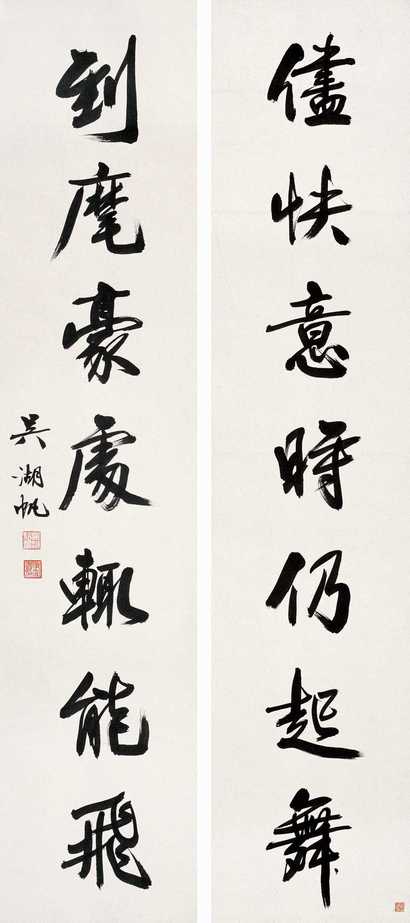 儘快意時仍起舞
到麾豪處輒能飛
吳湖帆